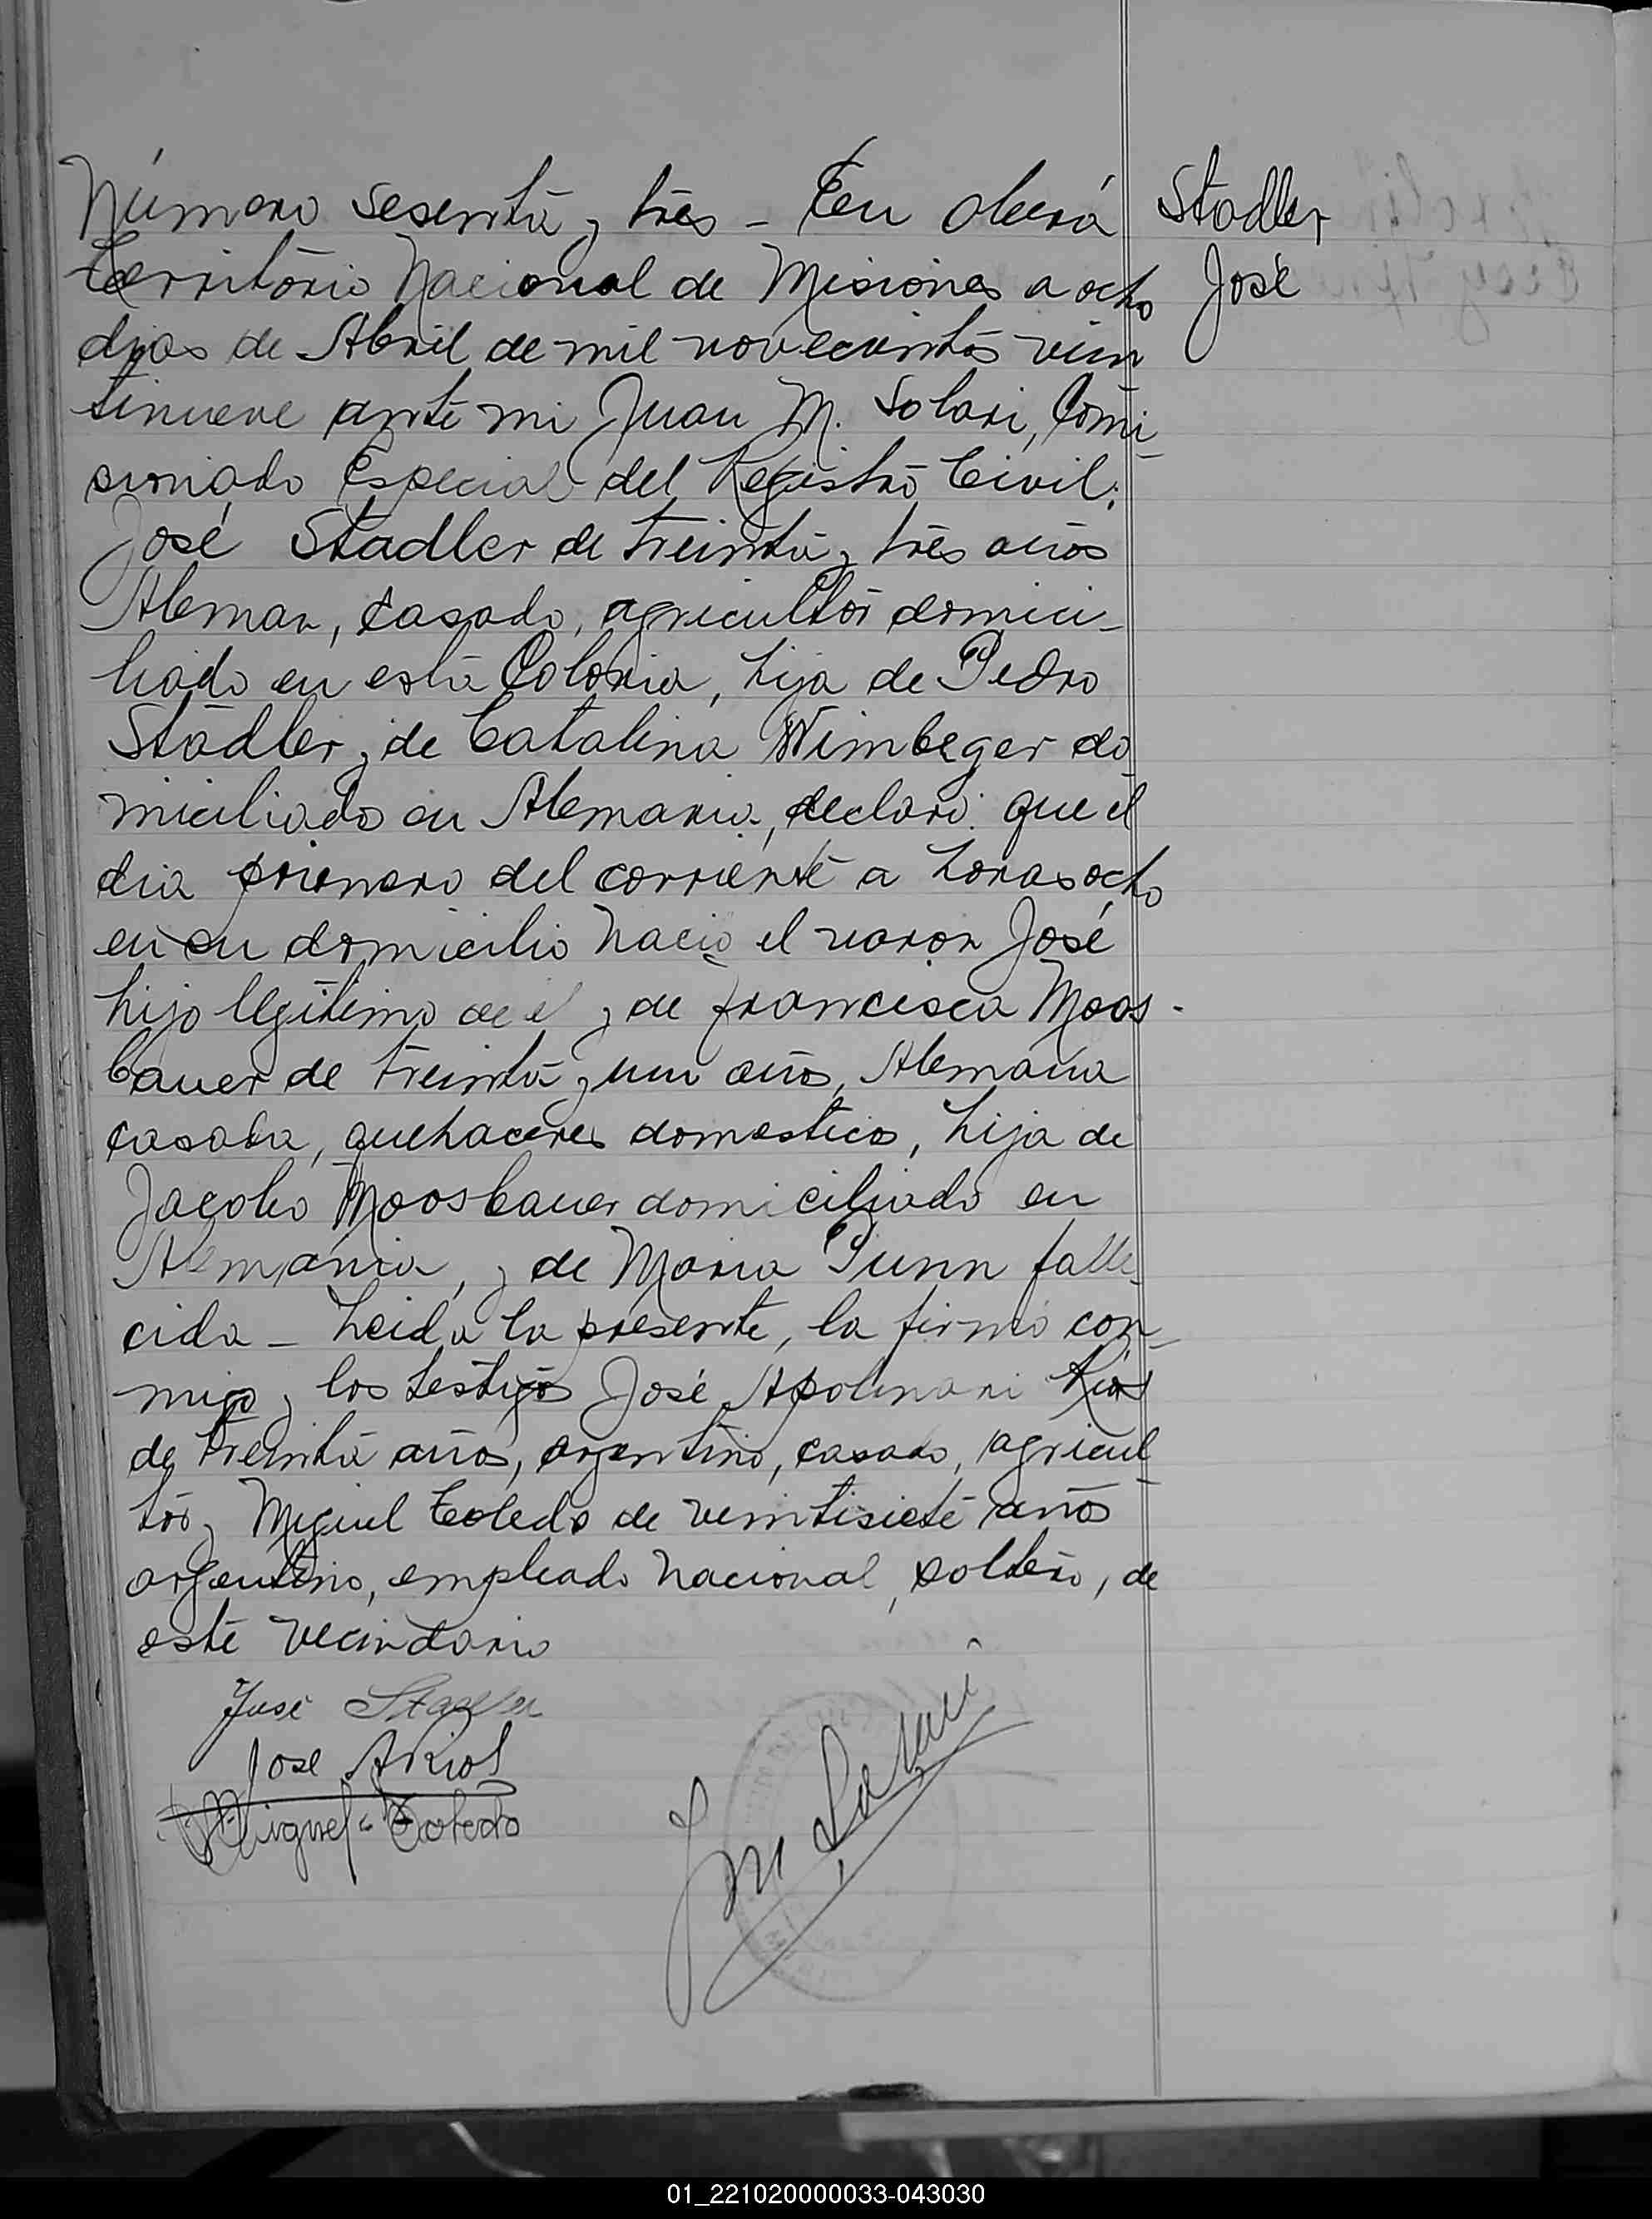 Número sesenta y tres - En Oberá
Territorio Nacional de Misiones a ocho
dias de Abril de mil novecientos vein
tinueve ante mi Juan M. Solari, Comi-
sionado Especial del Registro Civil:
José Stadler de treinta y tres años
Aleman, casado, agricultor domici-
liado en esta Colonia, hijo de Pedro
Stadler y de Catalina Wimbeger do
miciliado en Alemania, declaró: que el
dia primero del corriente a horas ocho
en su domicilio nació el varon José
hijo legitimo de el y de francisca Moos-
bauer de treinta y un años, Alemana
casada, quehaceres domesticos, hija de
Jacobo Moosbauer domiciliado en
Alemania, y de Maria Punn falle-
cida - Leida la presente, la firmó con-
migo y los testigos José Apolinari Rios
de treinta años, argentino, casado, agricul-
tor y Miguel Toledo de veintisiete años
argentino, empleado nacional, soltero, de
este vecindario
José Stadler
Jose A Rios
Miguel Toledo
J M Solari
Stadler
José
01_221020000033-043030